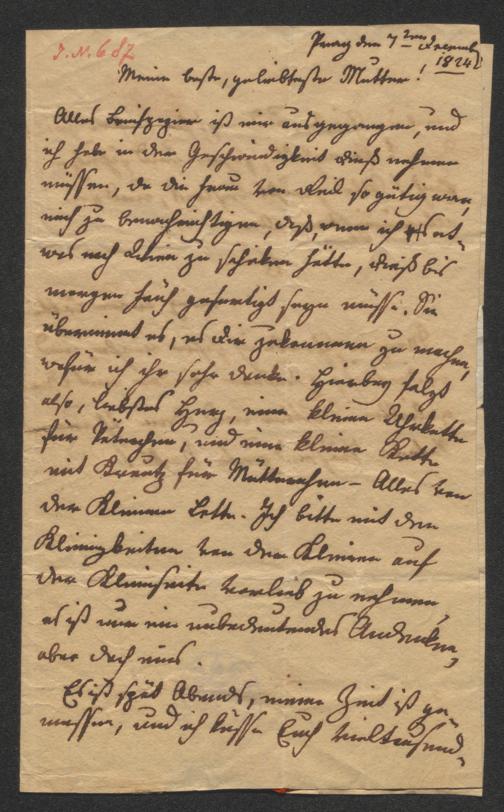 J. N. 687
Prag den 7ten December
1824
Meine beste, geliebteste Mutter!
Alles Briefpapier ist mir ausgegangen, und
ich habe in der Geschwindigkeit dieß nehmen
müssen, da die Frau von so gütig war,
mich zu benachrichtigen, daß, wenn ich et-
was nach Wien zu schicken hätte, dieß bis
morgen früh gefertigt seyn müsse. Sie
übernimmt es, es Dir zukommen zu machen,
wofür ich ihr sehr danke. Hierbey folgt
also, liebstes Herz, eine kleine Uhrkette
für , und eine kleine Kette
mit Kreutz für Mütterchen – Alles von
der Kleinen Bette. Ich bitte mit den
Kleinigkeiten von der Kleinen auf
der Kleinseite vorlieb zu nehmen
es ist nur ein unbedeutendes Andenken,
aber doch eins.
Es ist spät Abends, meine Zeit ist ge-
messen, und ich küsse Euch vieltausend-